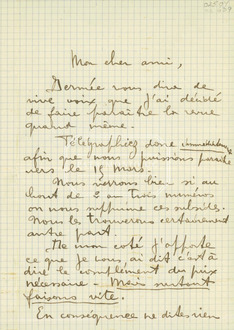 Mon cher ami,
Dermée vous dira de
vive voix que j'ai décidé
de faire paraître la revue
quand même.
Télégraphiez donc immédiatement
afin que nous puissions paraître
vers le 15 Mars.
Nous verrons bien si au
bout de 2 ou trois numéros
on nous supprime ces subsides.
Nous les trouverons certainement
autre part.
De mon côté j'apporte
ce que je vous ai dit c'est à
dire le complément du prix
nécessaire - Mais surtout
faisons vite.
En conséquence ne dites rien